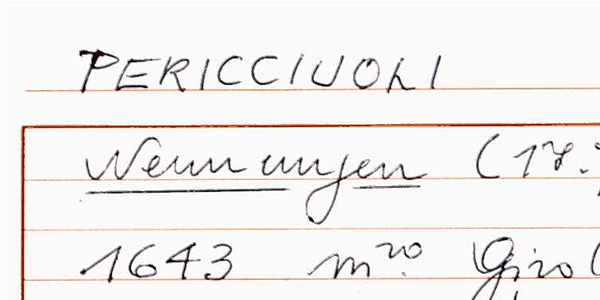 PERICCIUOLI
Nennungen (17.
1643 mro. Giro